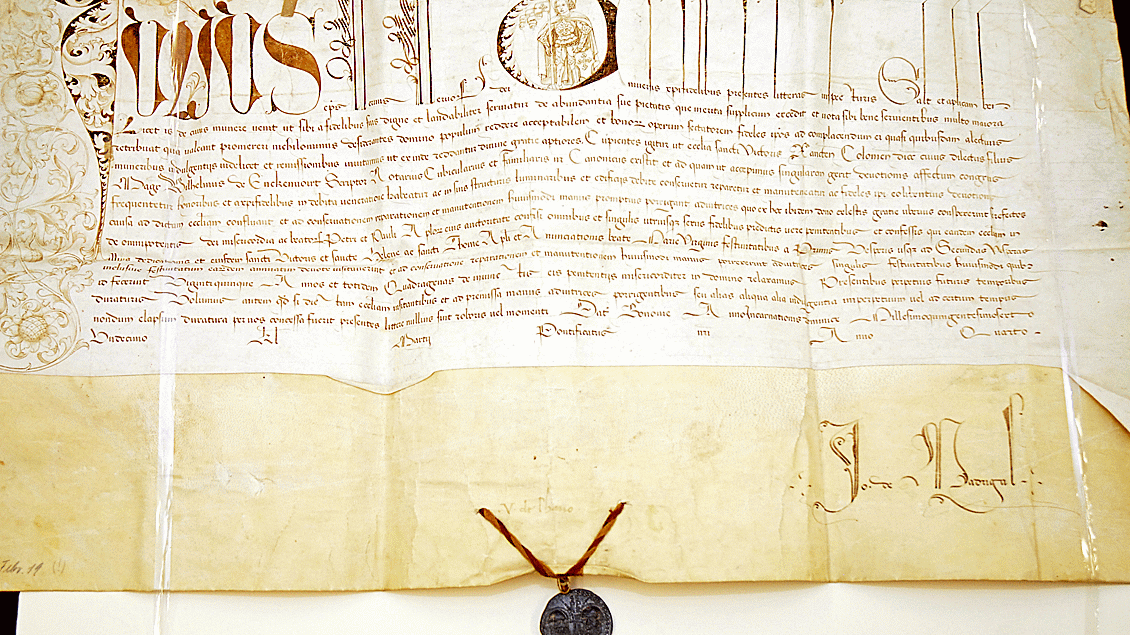 eps servus dei universis xpifidelibus presentes litteras inspecturis Salt et aplicam ben
Licet is de cuius munere venit ut sibi a fidelibus suis digne et laudabiliter serviatur de abundantia sue pietatis que merita supplicum excedit et vota sibi bene servientibus multo maiora
retribuat qua valeant promereri nichilominus desiderantes domino populum reddere acceptabilem et bonor operum sectatorem fideles ipos ad complacendum ei quasi quibusdam alectivis
muneribus indulgentijs videlicet et remissionibus invitamus ut exinde reddantur divine gratie aptiores Cupientes igitur ut ecclia sancti Victoris dilectus filius
Magr Wilhelmus de Enckenvoirt Scriptor Notarius Cubicularius et familiaris Canonicus existit et ad quam ut accepimus singularem gerit devotionis affectum congruis
frequentetur honoribus et a xpifidelibus in debita veneratione habeatur ac in suis structuris luminaribus et edificijs debite conservetur reparetur et manuteneatur ac fideles ipi devotionis
causa ad dictam eccliam confluant et ad conservationem reparationem et manutentionem huiusmodi manus promptius porrigant adiutrices quo ex hoc ibidem dono celestis gratie uberius conspexerint se refectos
de omnipotentis dei misericordia ac beator Petri et Pauli Aplor eius auctoritate confisi omnibus et singulis utriusq sexus fidelibus predictis vere penitentibus et confessis qui eandem eccliam in
illius dedicationis et eiusdem sancti Victoris et sancte Helene ac sancti Thome Apli et Annuntiationis beate Marie Virginis festivitatibus a Primis Vesperis usq ad Secundas Vesperas
inclusive festivitatum earundem annuatim devote visitaverint et ad conservationem reparationem et manutentionem huiusmodi manus porrexerint adiutrices singulis festivitatibus huiusmodi quib
id fecerint Vigintiquinque Annos et totidem Quadragenas de iniunctis eis penitentijs misericorditer in domino relaxamus Presentibus perpetuis futuris temporibus
duraturis Volumus autem qd si dicte eccliam visitantibus et ad premissa manus adiutrices porrigentibus seu alias aliqua alia indulgentia imperpetuum vel ad certum tempus
nondum elapsum duratura per nos concessa fuerit presentes littere nullius sint roboris vel momenti Dat Bononie Anno Incarnationis dominice Millesimoquingentesimosexto
Undecimo kl Martij Pontificatus nri Anno Quarto
Jo. de Madrigal
Febr. 19